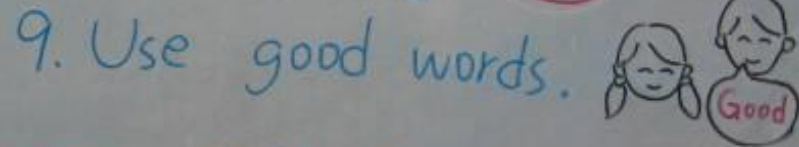 9. Use good words.
Good